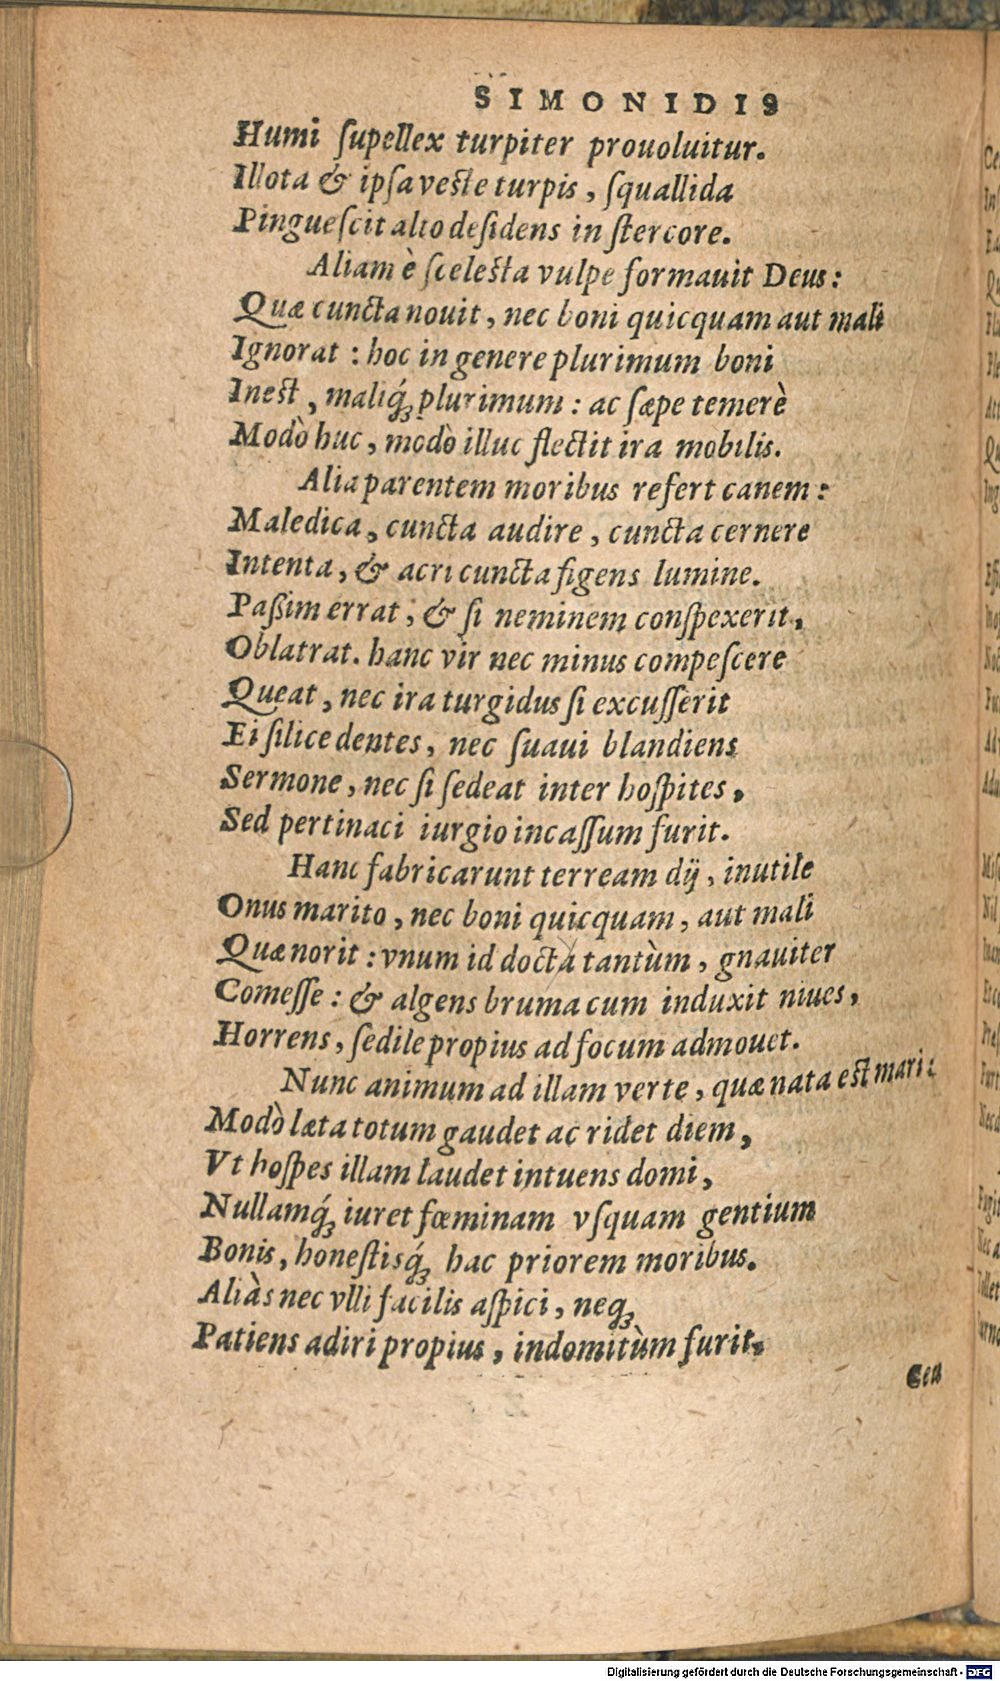 SIMONIDIS
Humi ſupellex turpiter prouoluitur.
Illota & ipſa veſte turpis, ſquallida
Pingueſcit alto deſidens in ſtercore.
Aliam è ſceleſta vulpe formauit Deus:
Quæ cuncta nouit, nec boni quicquam aut mali
Ignorat: hoc in genere plurimum boni
Ineſt, maliq́ꝫ plurimum: ac ſæpe temerè
Modò huc, modò illuc flectit ira mobilis.
Alia parentem moribus refert canem:
Maledica, cuncta audire, cuncta cernere
Intenta, & acri cuncta figens lumine.
Paßim errat, & ſi neminem conſpexerit,
Oblatrat. hanc vir nec minus compeſcere
Queat, nec ira turgidus ſi excuſſerit
Ei ſilice dentes, nec ſuaui blandiens
Sermone, nec ſi ſedeat inter hoſpites,
Sed pertinaci iurgio incaſſum furit.
Hanc fabricarunt terream dij, inutile
Onus marito, nec boni quicquam, aut mali
Quæ norit: vnum id docta tantùm, gnauiter
Comeſſe: & algens bruma cum induxit niues,
Horrens, ſedile propius ad focum admouet.
Nunc animum ad illam verte, quæ nata eſt mari:
Modò læta totum gaudet ac ridet diem,
Vt hoſpes illam laudet intuens domi,
Nullamq́ꝫ iuret fœminam vſquam gentium
Bonis, honeſtisq́ꝫ hac priorem moribus.
Aliàs nec vlli facilis aſpici, neqꝫ
Patiens adiri propius, indomitùm furit,
Ceu
Digitalisierung gefördert durch die Deutsche Forschungsgemeinschaft - DFG